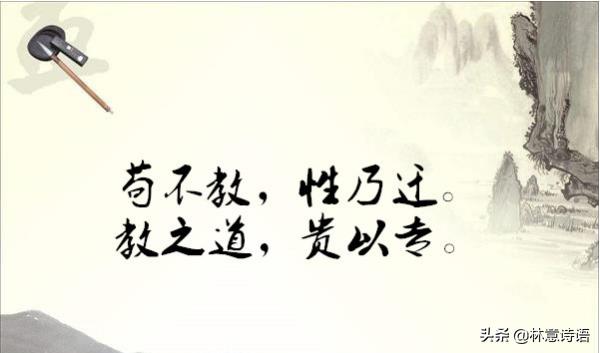 苟不教，性乃迁。
教之道，贵以专。
头条 @林慧诗语